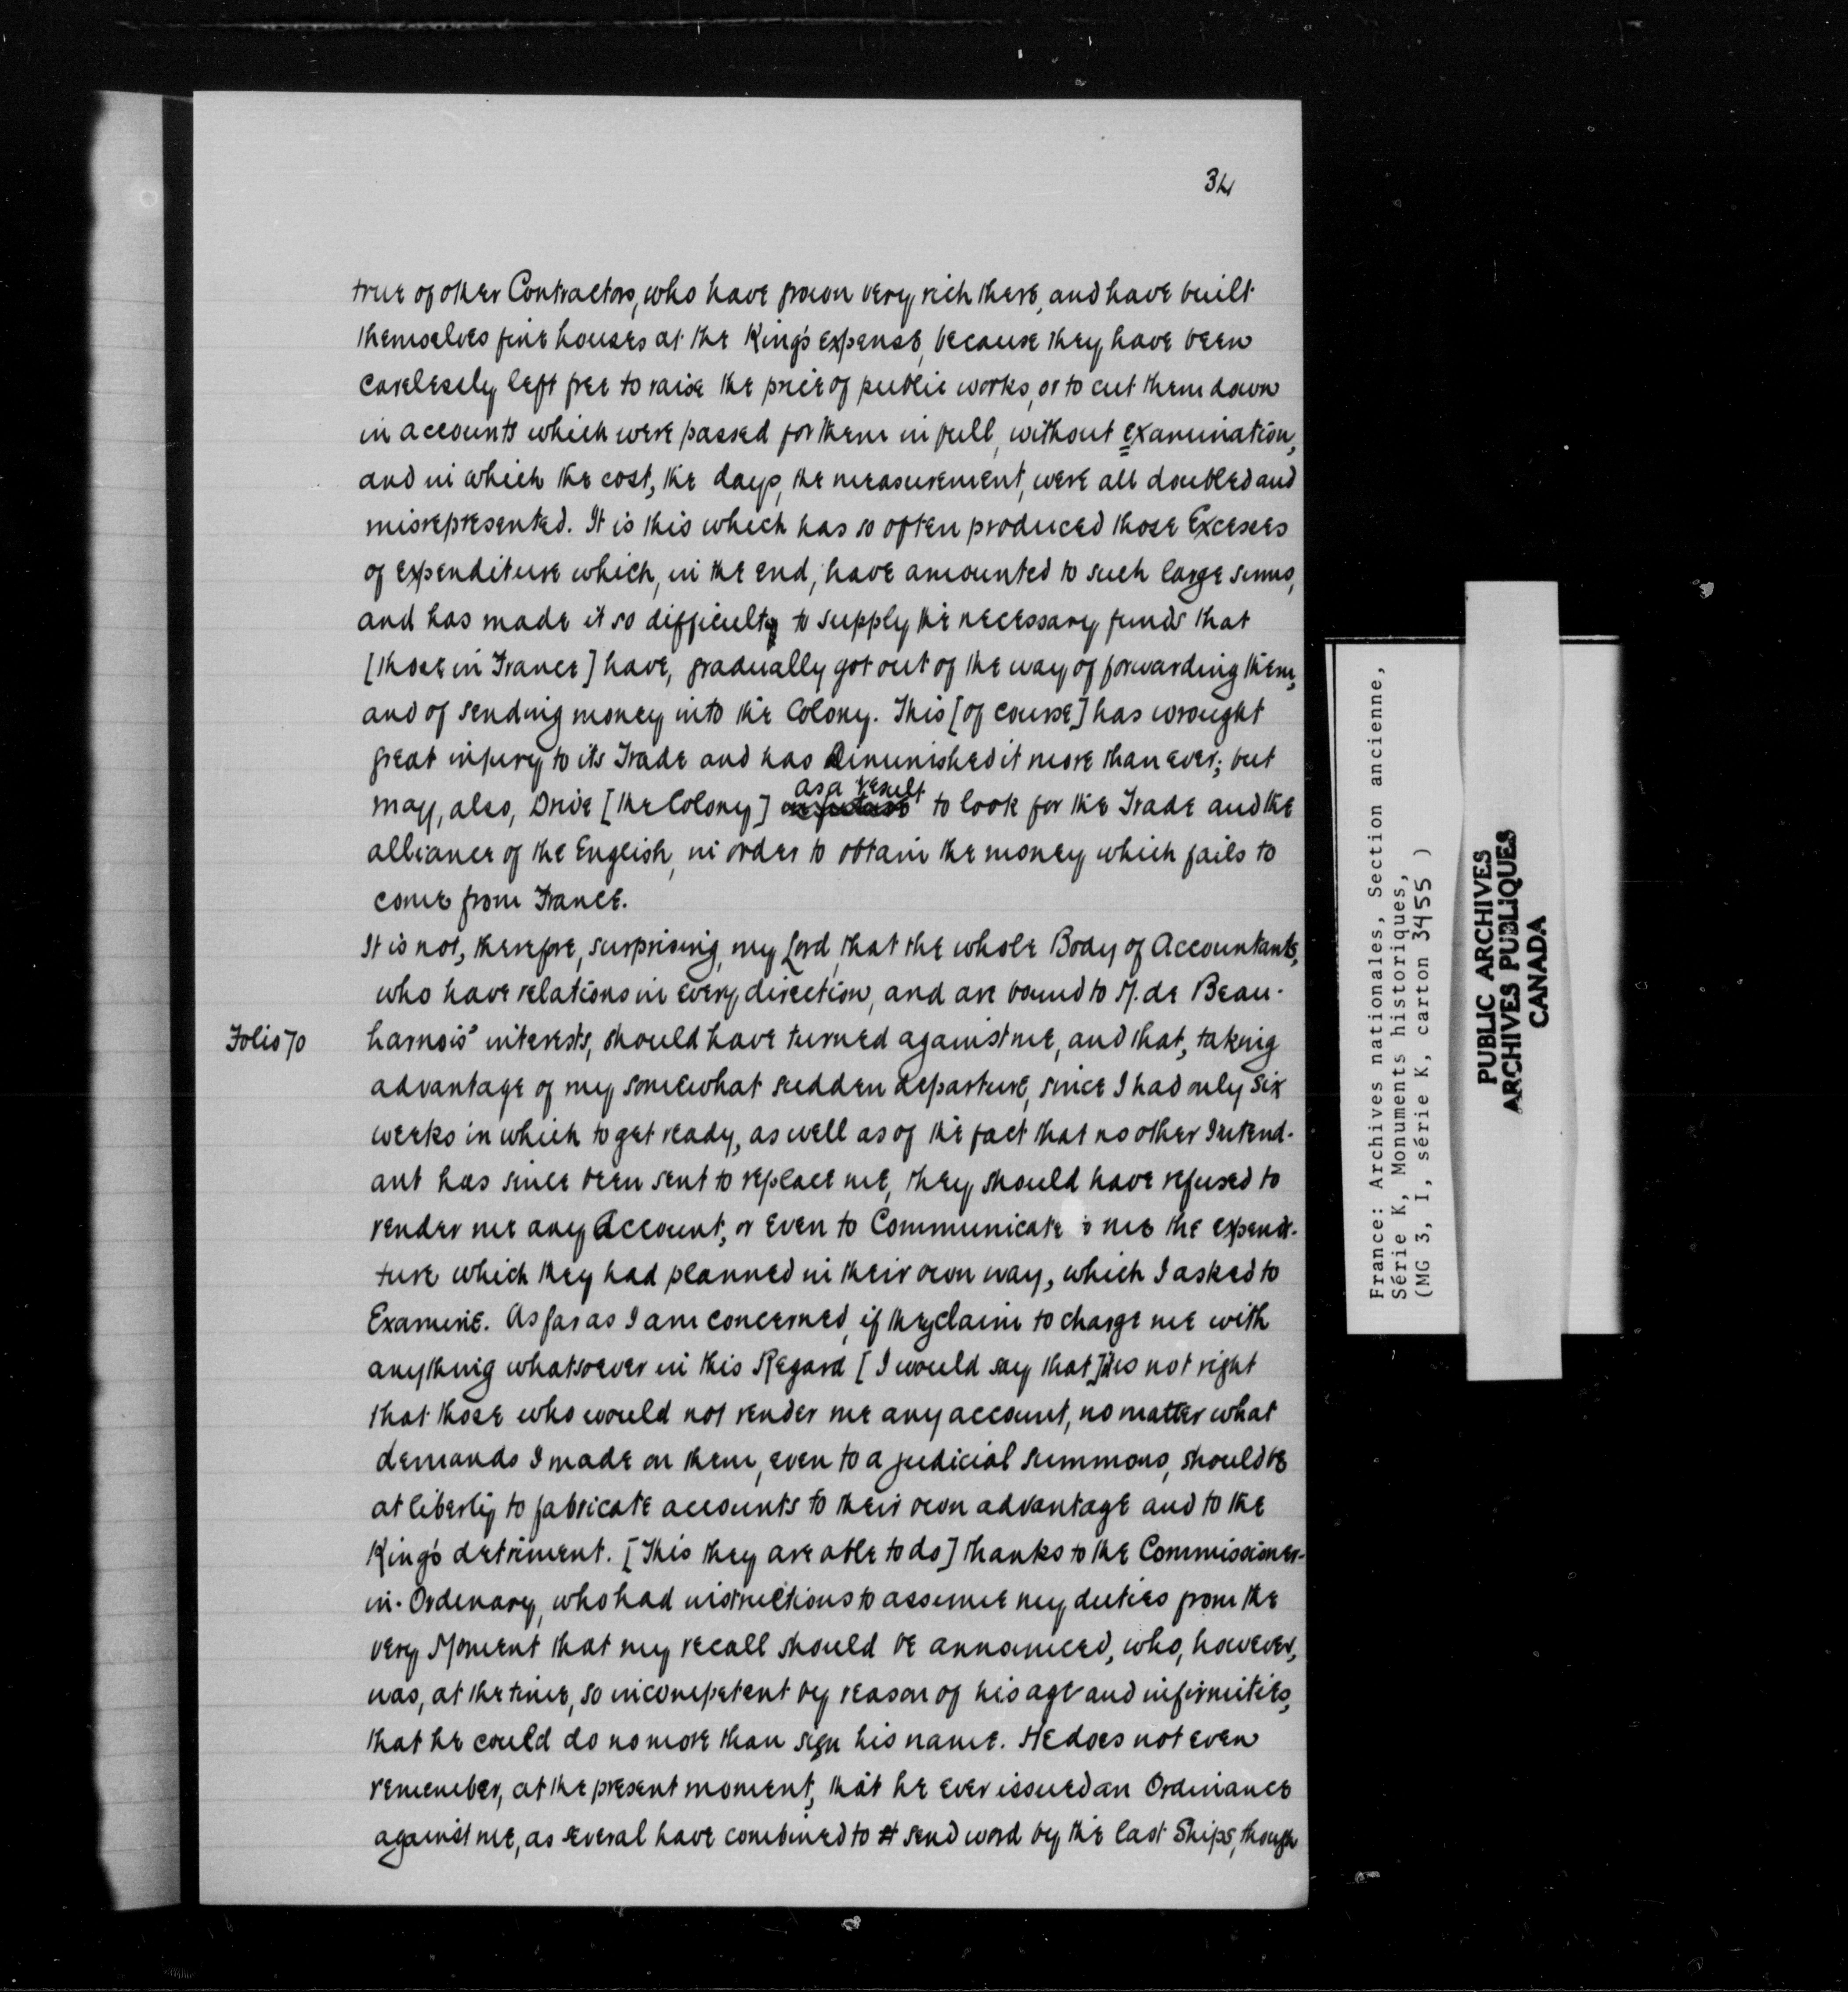 34
true of other Contractors, who have grown very rich there, and have built
themselves fine houses at the King's expense, because they have been
carelessly left free to raise the price of public works, or to cut them down
in accounts which were passed for them in full, without examination,
and in which the cost, the days, the measurement, were all doubled and
misrepresented. It is this which has so often produced those Excesses
of expenditure which, in the end, have amounted to such large sums,
and has made it so difficulty to supply the necessary funds that
[those in France] have, gradually got out of the way of forwarding them,
and of sending money into the Colony. This [of course] has wrought
great injury to its Trade and has Diminished it more than ever; but
may, also, Drive [the Colony] as a result to look for the Trade and the
alliance of the English, in order to obtain the money which fails to
come from France.
It is not, therefore, surprising, my Lord, that the whole Body of Accountants,
who have relations in every direction, and are bound to M. de Beau-
Folio 70
harnois' interests, should have turned against me, and that, taking
advantage of my somewhat sudden departure, since I had only six
weeks in which to get ready, as well as of the fact that no other Intend-
ant has since been sent to replace me, they should have refused to
render me any Account, or even to Communicate to me the expendi-
ture which they had planned in their own way, which I asked to
Examine. As far as I am concerned, if they claim to charge me with
anything whatsoever in this Regard [I would say that] it is not right
that those who would not render me any account, no matter what
demands I made on them, even to a judicial summons, should be
at liberty to fabricate accounts to their own advantage and to the
King's detriment. [This they are able to do] thanks to the Commissioner-
in-Ordenary, who had instructions to assume my duties from the
very Moment that my recall should be announced, who, however,
was, at the time, so incompetent by reason of his age and infirmities,
that he could do no more than sign his name. He does not even
remember, at the present moment, that he ever issued an Ordinance
against me, as several have combined to send word by the last Ships, though
France: Archives nationales, Section ancienne,
Série K, Monuments historiques,
(MG 3, I, série K, carton 3455 )
PUBLIC ARCHIVES
ARCHIVES PUBLIQUES
CANADA